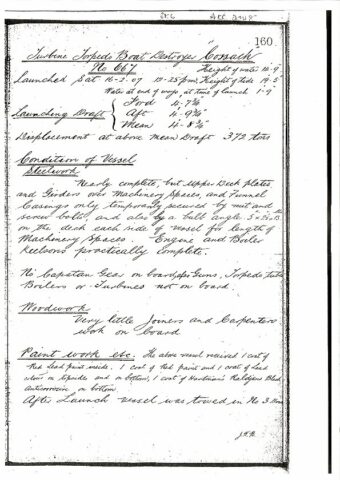 160
Turbine Torpedo Boat Destroyer "Cossack"
No 667 Height of water 16-9
Launched Sat 16-2-07 12-25 p.m. Height of tide 19-5
Water at end of ways, at time of launch 1-9
Launching Draft
Ford 4-7
Aft 4-9
Mean 4-8
Displacement at above mean Draft 372 tons
Condition of Vessel
Steelwork
Nearly complete, but Upper Deck plates
and Girders over Machinery Spaces, and Funnel
Casings only temporarily secured by nut and
screw bolts, and also by a bulb angle
on the deck each side of vessel for length of
Machinery Spaces. Engine and Boiler
Keelsons practically complete.
No Capstan Gear on board, also Guns, Torpedo Tubes
Boilers or Turbines not on board.
Woodwork
Very little Joiners and Carpenters
work on board
Paint work etc. The above vessel received 1 coat of
Red Lead paint inside. 1 coat of Red paint and 1 coat of Lead
colour on topside and on bottom, 1 coat of
Anticorrosive on bottom
After Launch vessel was towed in No 3